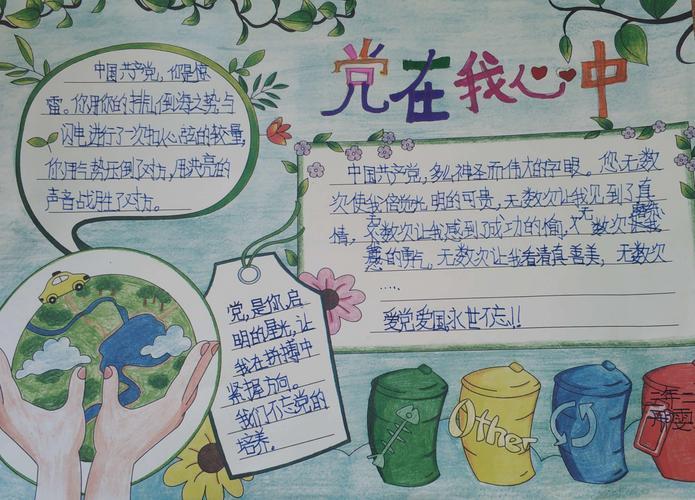 党在我心中
中国共产党,你是惊
雷。你用你的排山倒海之势与
闪电进行了一次扣人心弦的较量,
你用气势压倒了对方,用洪亮的
声音战胜了对方。
中国共产党,多么神圣而伟大的字眼。您无数
次使我倍觉光明的可贵,无数次让我见到了真
情,无数次让我感到了成功的愉
的勇气,无数次让我看清真善美,无数次
……
爱党爱国永世不忘!!
党,是你启
明的星光,让
我在拼搏中
紧握方向。
我们不忘党的
培养。
Other